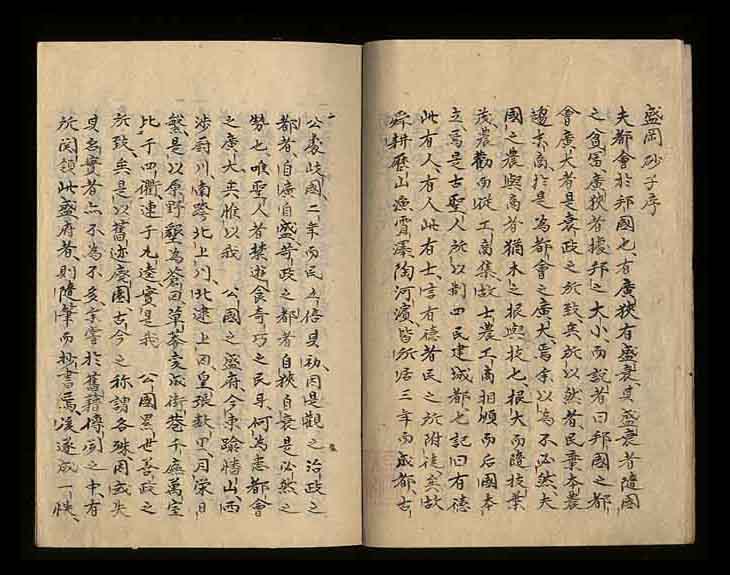 盛岡砂子序
夫都會於邦國也、有廣狹有盛衰、其盛衰者隨國
之貧富、廣狹者據邦之大小、而説者曰邦國之都
會廣大者是衰政之所致矣、所以然者、民棄本農
趨末商、於是爲都會之廣大焉、余以為不必然、夫
國之農與商者猶木之根與枝也、根大而隨枝葉
茂、農勸而從工商集、故士農工商相順而后國本
立焉、是古聖人所以制四民建城都也、記曰有德
此有人、有人此有土、言有德者民之所附從矣、故
舜耕歷山漁雷澤陶河濱、皆所居三年而成都、古
公處岐國二年而民五倍其初、因是觀之治政之
都者、自廣自盛、苛政之都者自狹自衰、是必然之
勢也、唯聖人者禁遊食奇巧之民耳、何為患都會
之廣大矣、惟以我 公國之盛府、今東踰幡山、西
涉 川、南跨北上川、北逮上田、皇張數里、月榮日
繁、是以原野墾為蒼田、草莽交成街巷、千廬萬室
比于四衢、連于九逵、實是我 公國累世善政之
所致矣、是以舊迹廢園、古今之稱謂各殊、因或失
其名實者亦不為不多、余嘗於舊籍傳聞之中、有
所関領此盛府者、則隨筆而抄書焉、後遂成一帙、